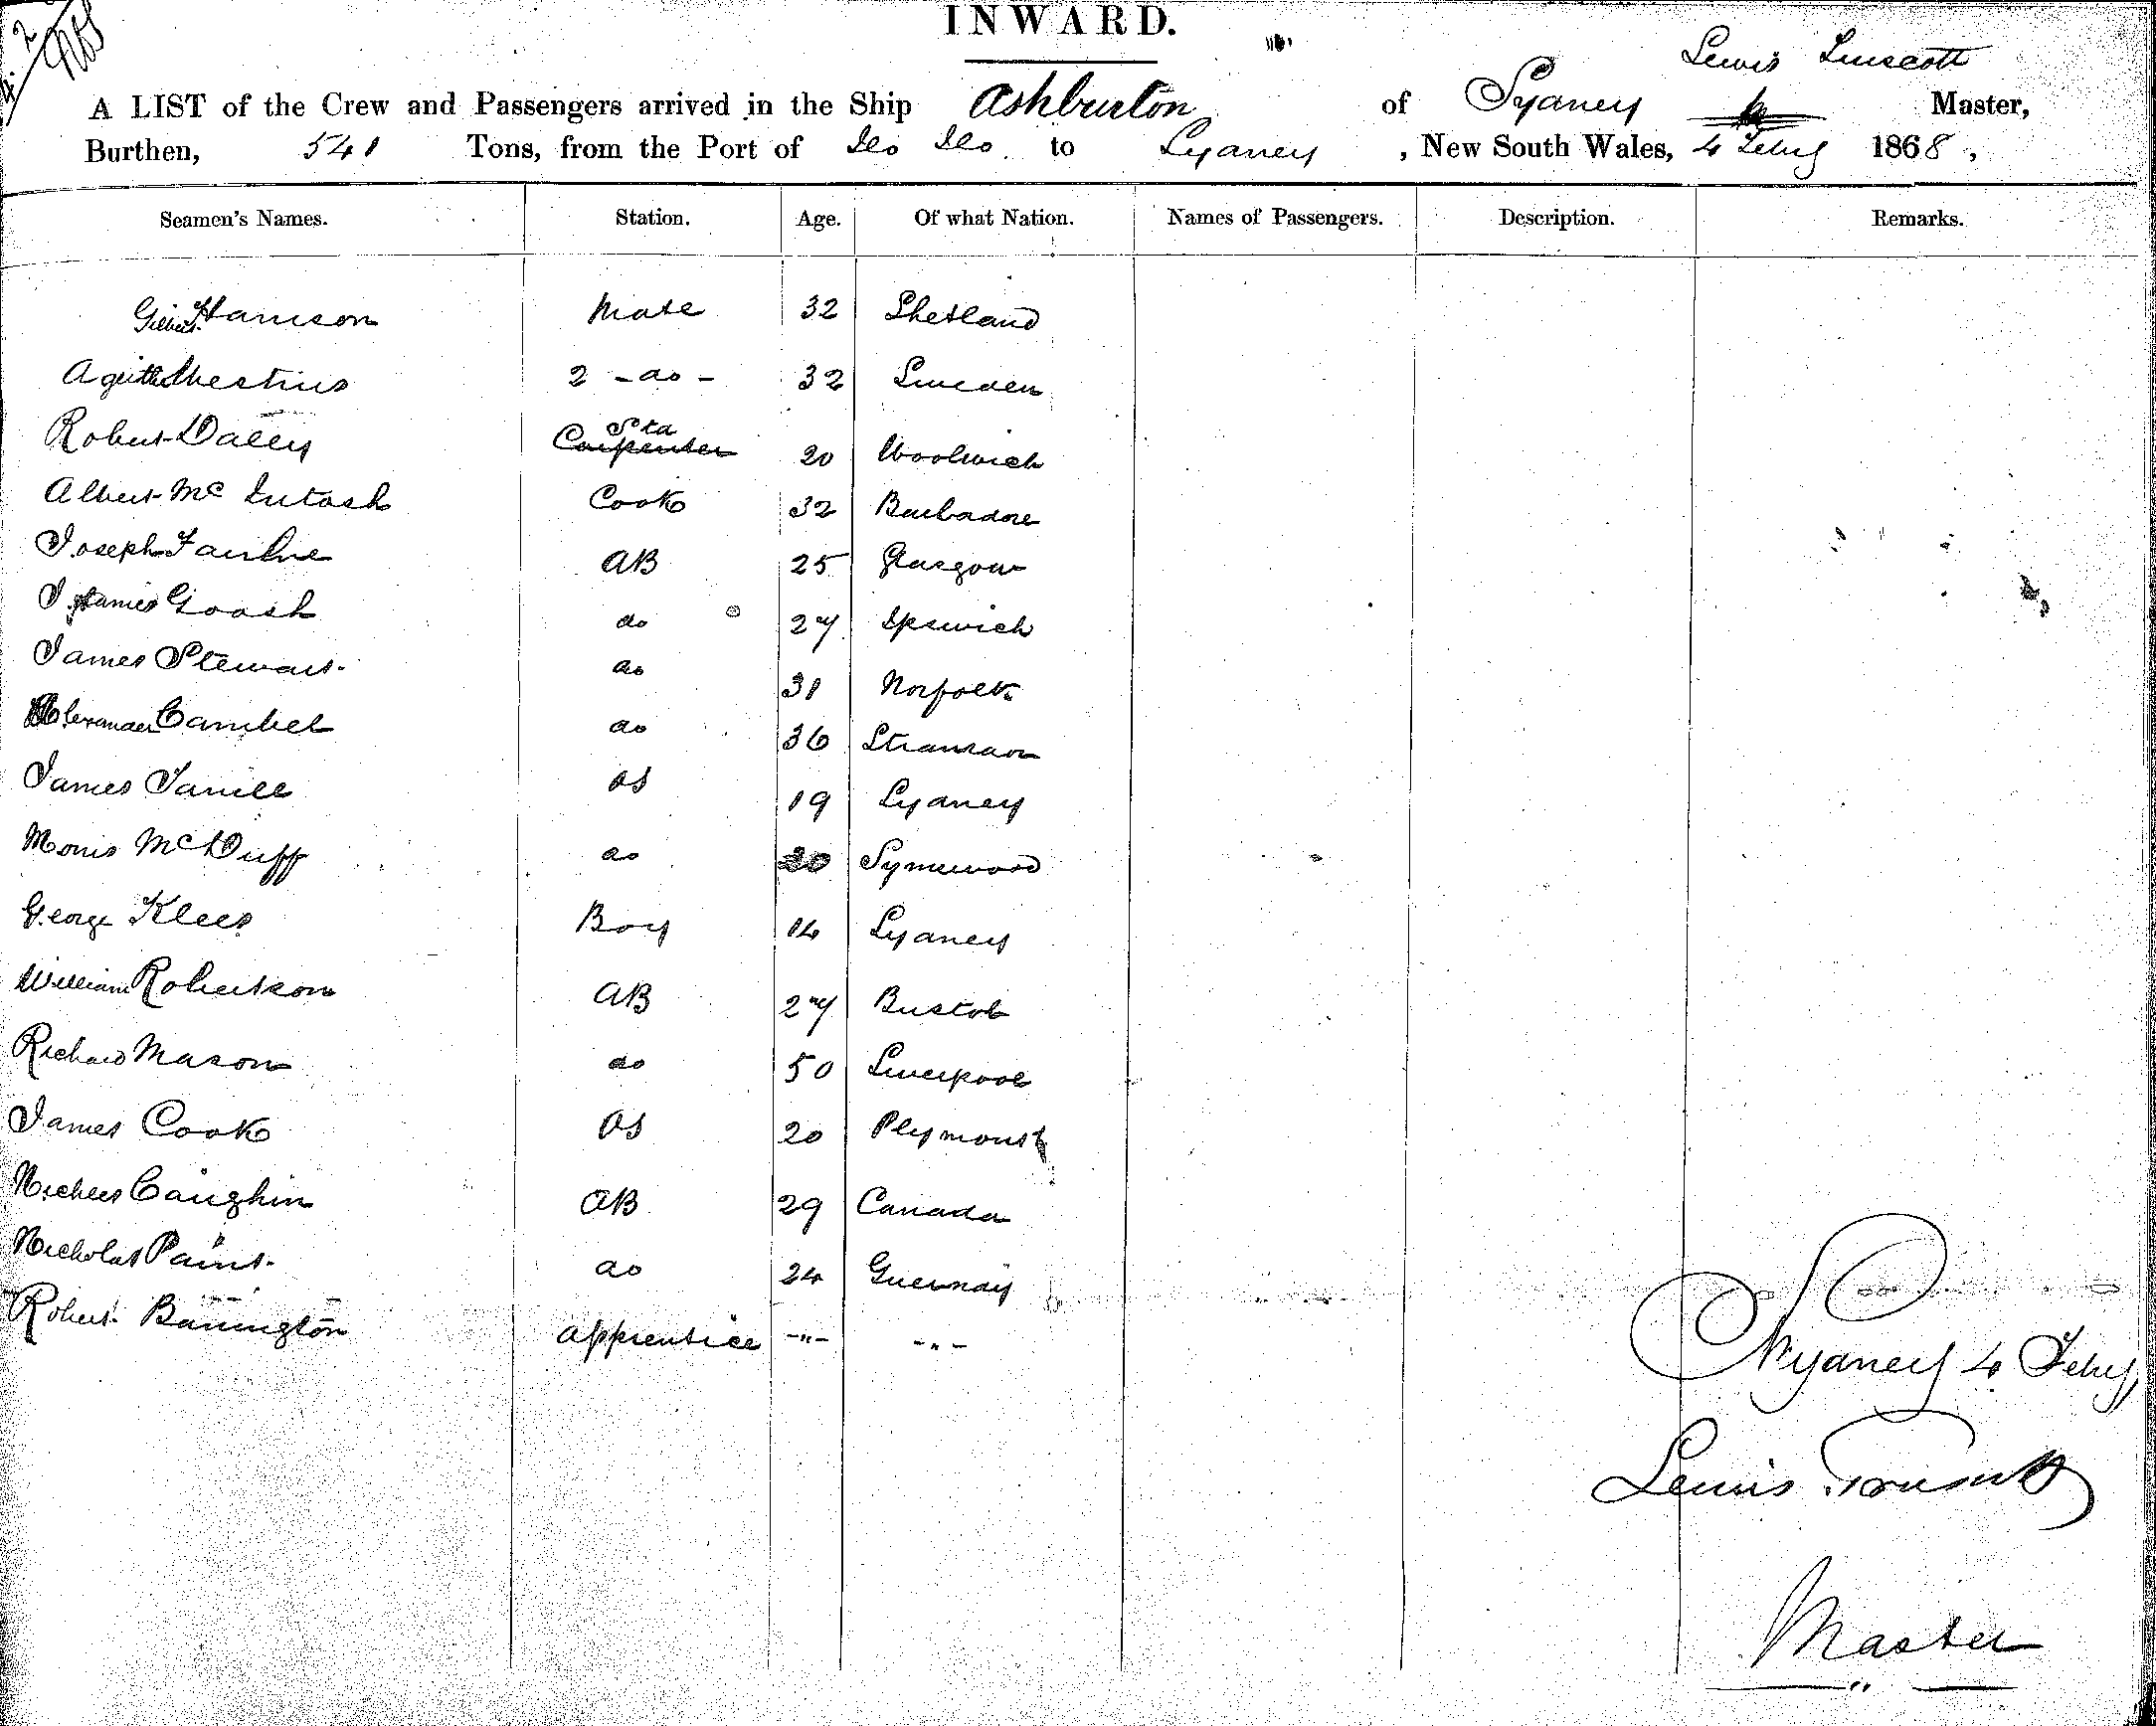 INWARD.
Lewis Linscott
A LIST of the Crew and Passengers arrived in the Ship Ashburton of Sydney Master,
Burthen, 541 Tons, from the Port of Ilo Ilo to Sydney, New South Wales, 4 Feby 1868,
Seamen's Names. Station. Age. Of what Nation. Names of Passengers. Description. Remarks.
Gilbert Harrison Mate 32 Shetland
2 - do - 32 Sweden
Robert Dalley Std Carpenter 20 Woolwich
Albert Mc Intosh Cook 32 Barbadoe
Joseph AB 25 Glasgow
James Goosh do 27 Ipswich
James Stewart do 31 Norfolk
Alexander Cambel do 36 Stranraor
James OS 19 Sydney
Morris McDuff do 20
George Klees Boy 14 Sydney
William Robertson AB 27 Bristol
Richard Mason do 50 Liverpool
James Cook OS 20 Plymouth
Caughin AB 29 Canada
Nicholas Paint do 24 Guernsey
Robert Barrington apprentice -"- -"-
Sydney 4 Feby
Lewis Linscott
Master